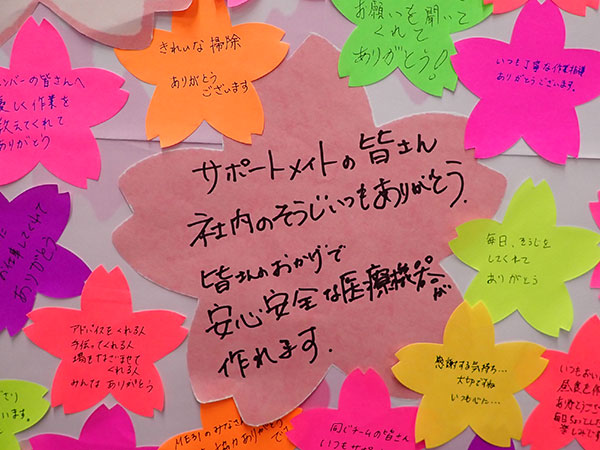 きれいな掃除
ありがとう
ございます
お願いを聞いて
くれて
ありがとう!
いつも丁寧な作業指導
ありがとうございます。
ンバーの皆さんへ
優しく作業を
教えてくれて
ありがとう
サポートメイトの皆さん
社内のそうじいつもありがとう。
皆さんのおかげで
安心安全な医療機器が
作れます。
毎日、そうじを
してくれて
ありがとう
お仕事してくれて
ありがとう
アドバイスをくれる人
手伝ってくれる人
場をなごませて
くれる人
みんな ありがとう
感謝する気持ち…
大切ですね
いつも心に…
いつもおい
昼食を作
ありがとうござ
毎日
楽しみで
います。
MEBIのみなさ
ありがとう
同じチームの皆さん
いつもサポ